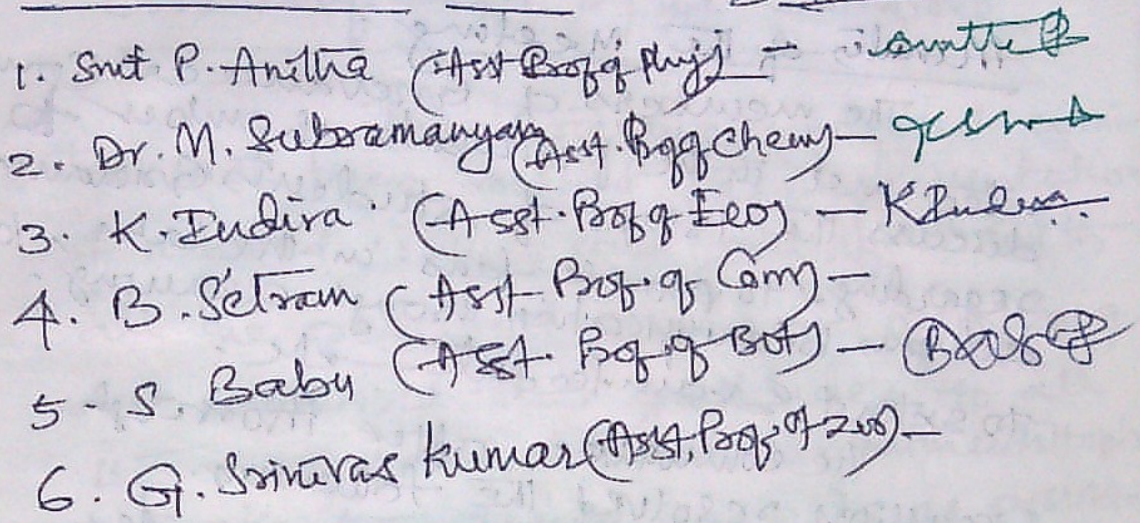 1. Smt P. Anitha (Asst Prof of Phy) -
2. Dr. M. Subramanyam (Asst. Prof of Chem) -
3. K. Indira (Asst. Prof of Eco) - K Indira
4. B. Setram (Asst Prof. of Com) -
5 - S. Babu (Asst. Prof. of Bot) -
6. G. Srinivas Kumar (Asst. Prof. of Zoo) -